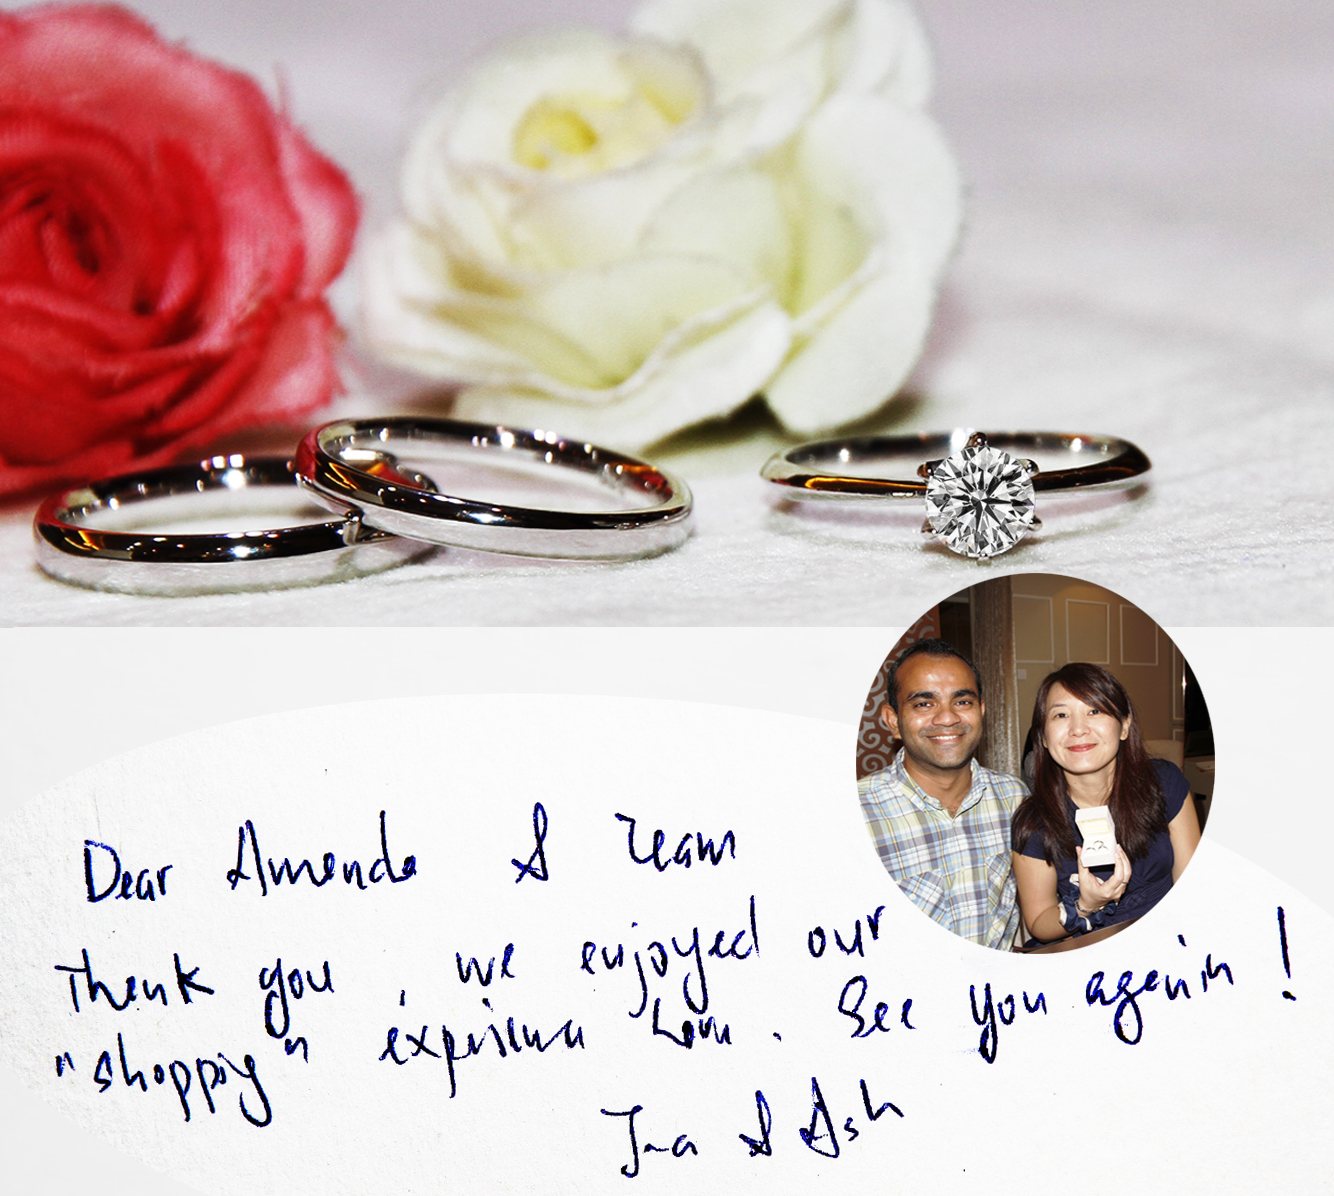 Dear Amanda & Team
Thank you, we enjoyed our
"shopping" experience here. See you again!
& Ash